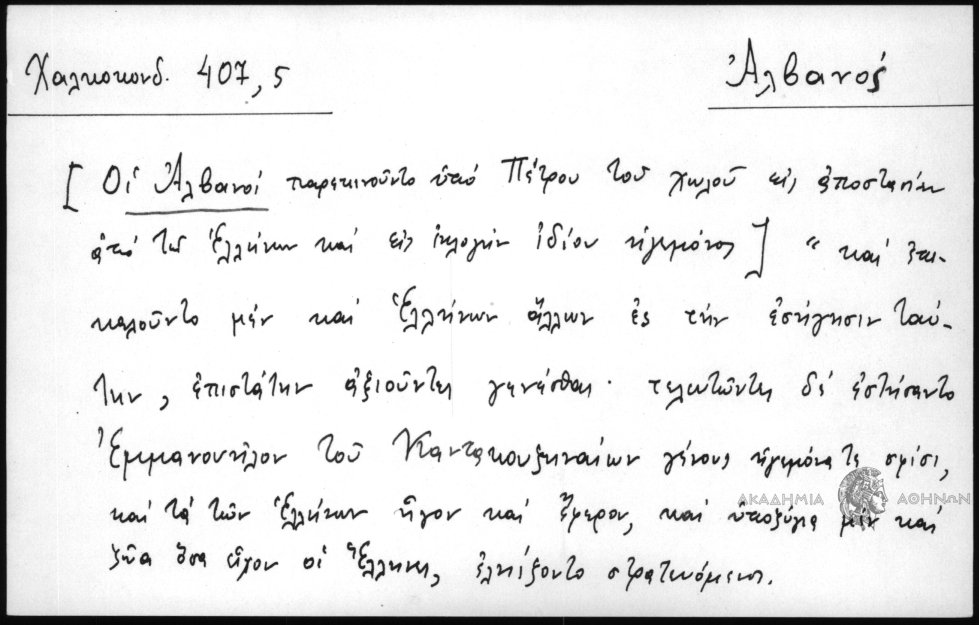 Χαλκοκονδ. 407,5
Ἀλβανός
[Οἱ Ἀλβανοί παρεκινοῦντο ὑπό Πέτρου τοῦ χωλοῦ εἰς ἀποστασίαν
ἀπό τῶν Ἑλλήνων καί εἰς ἐκλογήν ἰδίου ἡγεμόνος] “ καί ἐπε-
καλοῦντο μέν καί Ἑλλήνων ἄλλων ἐς τήν ἐσήγησιν ταύ-
την, ἐπιστάτην ἀξιοῦντες γενέσθαι· τελευτῶντες δέ ἐστήσαντο
Ἐμμανουῆλον τοῦ Καντακουζηναίων γένους ἡγεμόνα τε σφίσι,
καί τά τῶν Ἑλλήνων ἦγον καί ἔφερον, καί ὑποζύγια μέν καί
ζῷα ὅσα εἶχον οἱ Ἕλληνες, ἐληίζοντο στρατευόμενοι.
ΑΚΑΔΗΜΙΑ ΑΘΗΝΩΝ